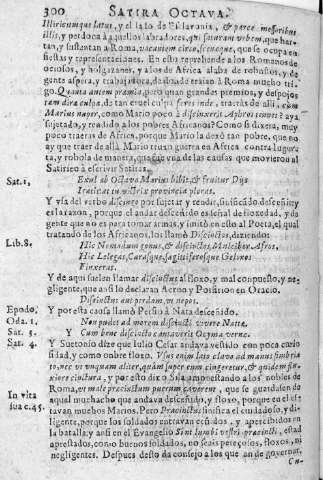 300 SATIRA OCTAVA.
Illiricumque latus, y el lado de Esclavonia, & parce messoribus
illis, y perdona à aquellos labradores, qui saturant vrbem, que har-
tan, y sustentan a Roma, vacantem circo, scenaque, que se ocupa en
fiestas y representaciones. En esto reprehende a los Romanos de
ociosos, y holgazanes, y a los de Africa alaba de robustos, y de
gente aspera, y trabajadora, de donde traían à Roma mucho tri-
go. Quanta autem præmia, pero quan grandes premios, y despojos
tam diræ culpæ, de tan cruel culpa feres inde, traeràs de allí, cum
Marius nuper, como Mario poco à discinxerit Aphros tenues? aya
sujetado, y rendido a los pobres Africanos? Como si dixera, muy
poco traeras de Africa, porque Mario la dexò tan pobre, que no
ay que traer de allà. Mario truxo guerra en Africa contra Iugur-
ta, y robola de manera, que fue vna de las causas que movieron al
Satirico à escrivir Satiras.
Sat. 1, Exul ab Octava Marius bibit, & fruitur Dijs
Iratis, at tu victrix provincia ploras.
Y vsa del verbo discingo por sujetar y rendir, susticado descenir, y
es la razon, porque el andar desceñido es señal de floxedad, y da
gente que no es para tomar armas, y imitò en esto al Poeta, el qual
tratando de los Africanos, los llamò Discinctos, diziendo:
Lib. 8. Hic Nomadum genus, & discinctos Mulciber Afros,
Hic Lelegas, Carasque, sagittiferosque Gelonos
Finxerat.
Y de aqui suelen llamar discinctus al floxo, y mal compuesto, y ne-
gligente, que ansi lo declaran Acron y Porfirion en Oracio.
Discinctus aut perdam vt nepos.
Epodo. Y por esta causa llamò Persio à Nata desceñido.
Oda. 1. Non pudet ad morem discincti vivere Nattæ.
Sat. 5. Y Cum bene discinctus cantaverit Ocyma vernæ.
Sat. 4. Y Suetonio dize que Iulio Cesar andava vestido con poco cuyda-
dad, y como onbre floxo. Vsus enim lato clavo ad manus fimbria
to, nec vt vnquam aliter, quàm super eum cingeretur, & quidem flu-
xiore cinctura, y por esto dixo Sila amonestando a los nobles de
Roma, vt male præcinctum puerum caverent, que se guardasen de
In vita aquel muchacho que andava desceñido, y floxo, porque en el es-
sua c. 45. tavan muchos Marios. Pero Præcinctus significa el cuidadoso, y di-
ligente, porque los soldados entravan ceñidos, y apercibidos en
la batalla, y ansi en el Evangelio Sint lumbi vestri præcincti, estad
aprestados, como buenos soldados, no seais perezosos, floxos, ni
negligentes. Despues desto da consejo a los que an de governar,
Cu-